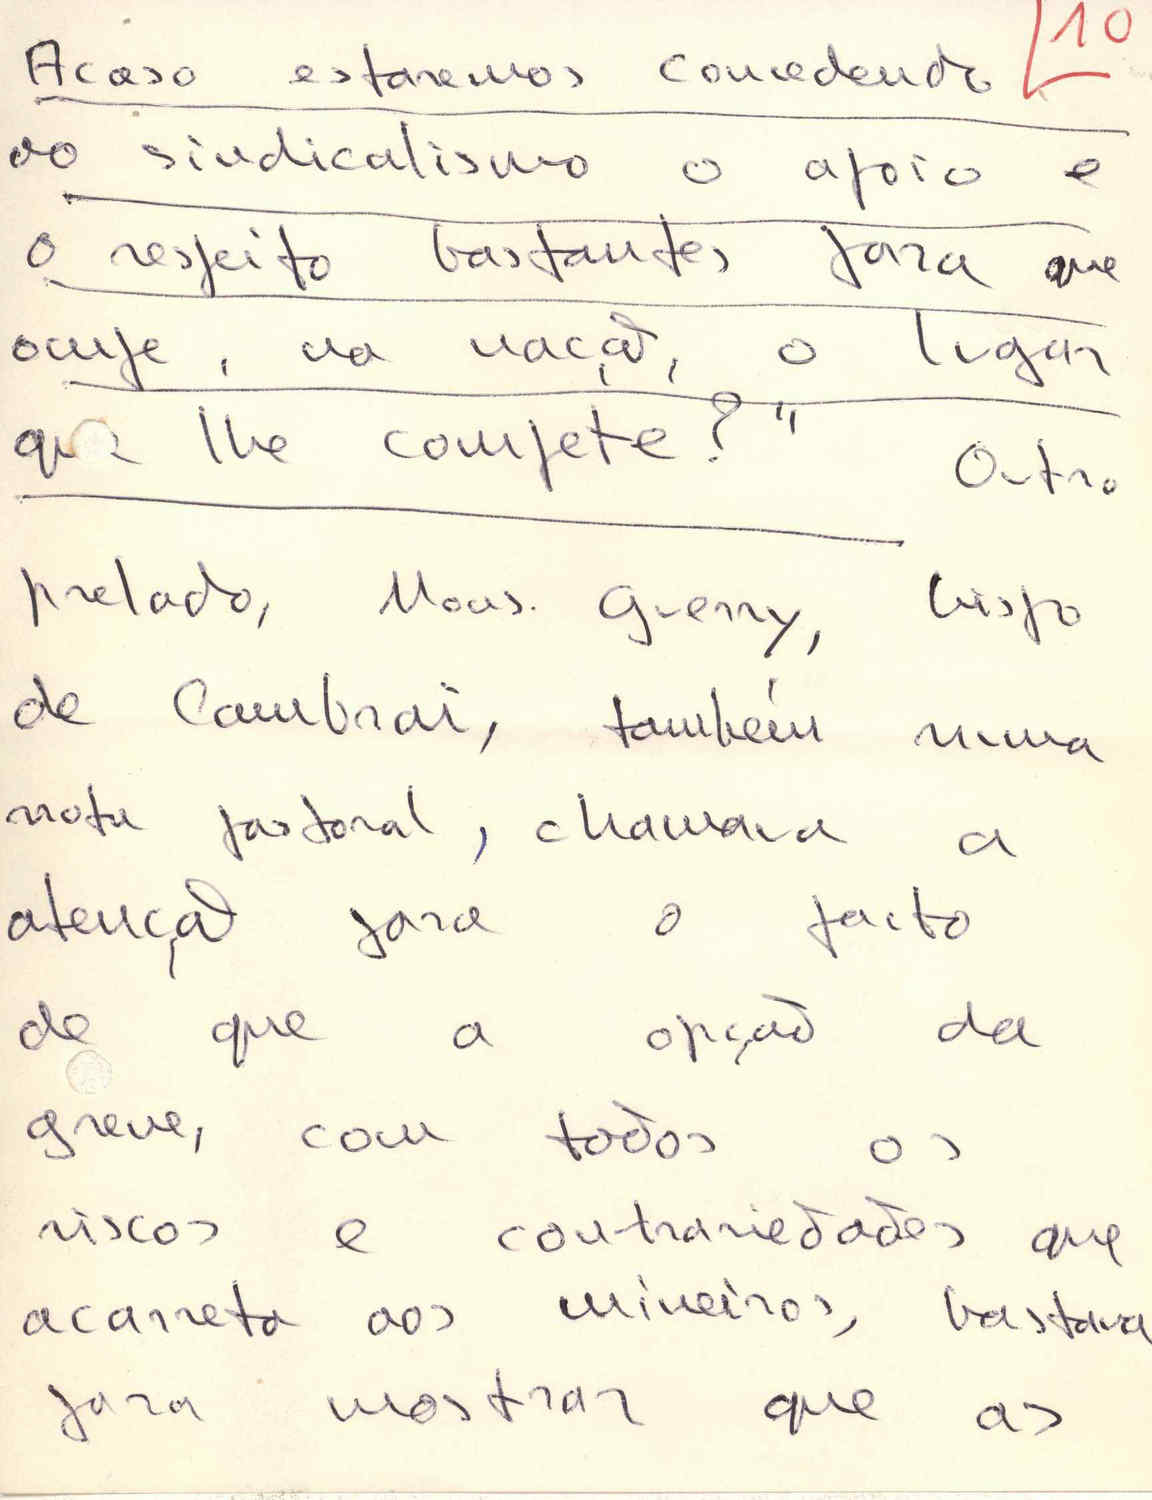 10
Acaso estaremos concedendo
ao sindicalismo o apoio e
o respeito bastantes para que
ocupe, na nação, o lugar
que lhe compete?" Outro
prelado, Mons. Guerry, bispo
de Cambrai, também numa
nota pastoral, chamava a
atenção para o facto
de que a opção da
greve, com todos os
riscos e contrariedades que
acarreta aos mineiros, bastava
para mostrar que as